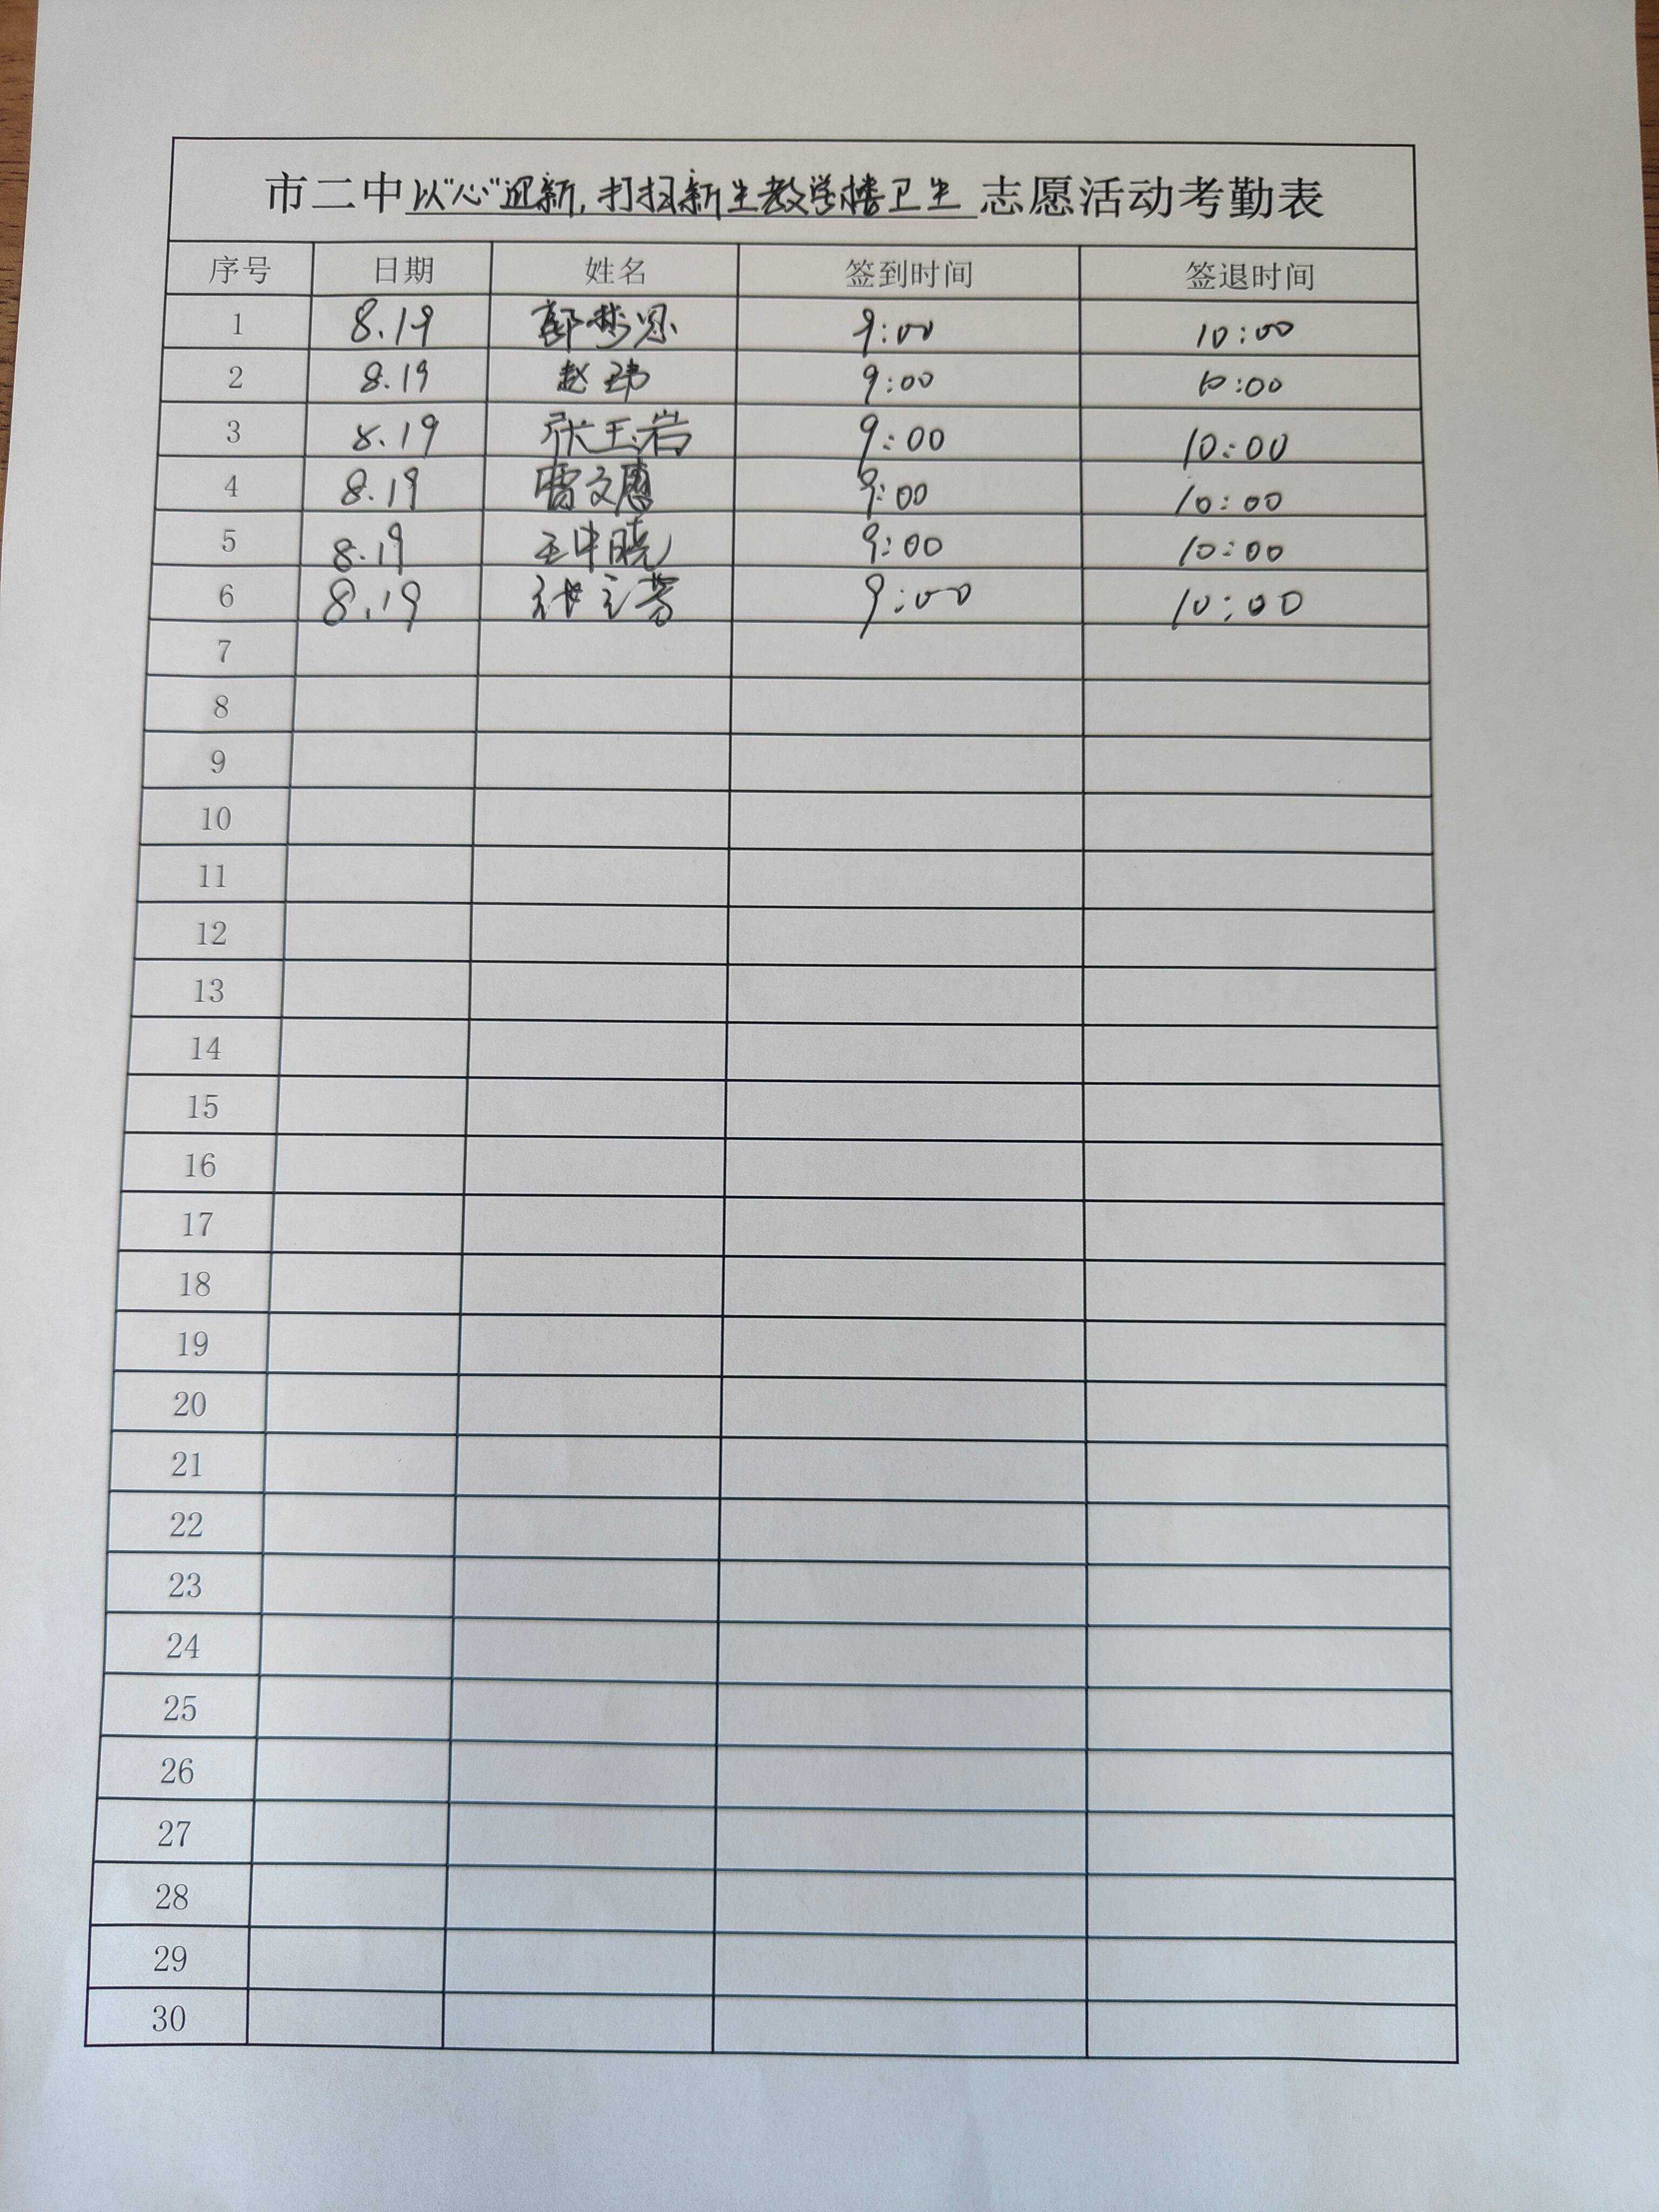 市二中以“心”迎新,打扫新生教学楼卫生志愿活动考勤表
序号 日期 姓名 签到时间 签退时间
1 8.19 9:00 10:00
2 8.19 赵玮 9:00 10:00
3 8.19 张玉岩 9:00 10:00
4 8.19 曹文 9:00 10:00
5 8.19 王中晓 9:00 10:00
6 8.19 9:00 10:00
7
8
9
10
11
12
13
14
15
16
17
18
19
20
21
22
23
24
25
26
27
28
29
30